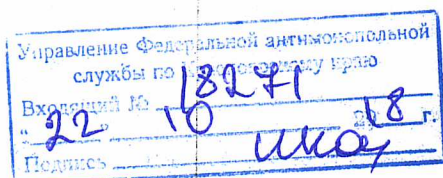 Управление Федеральной антимонопольной
службы по краю
Входящий № 18271
" 22 " 10 2018 г.
Подпись